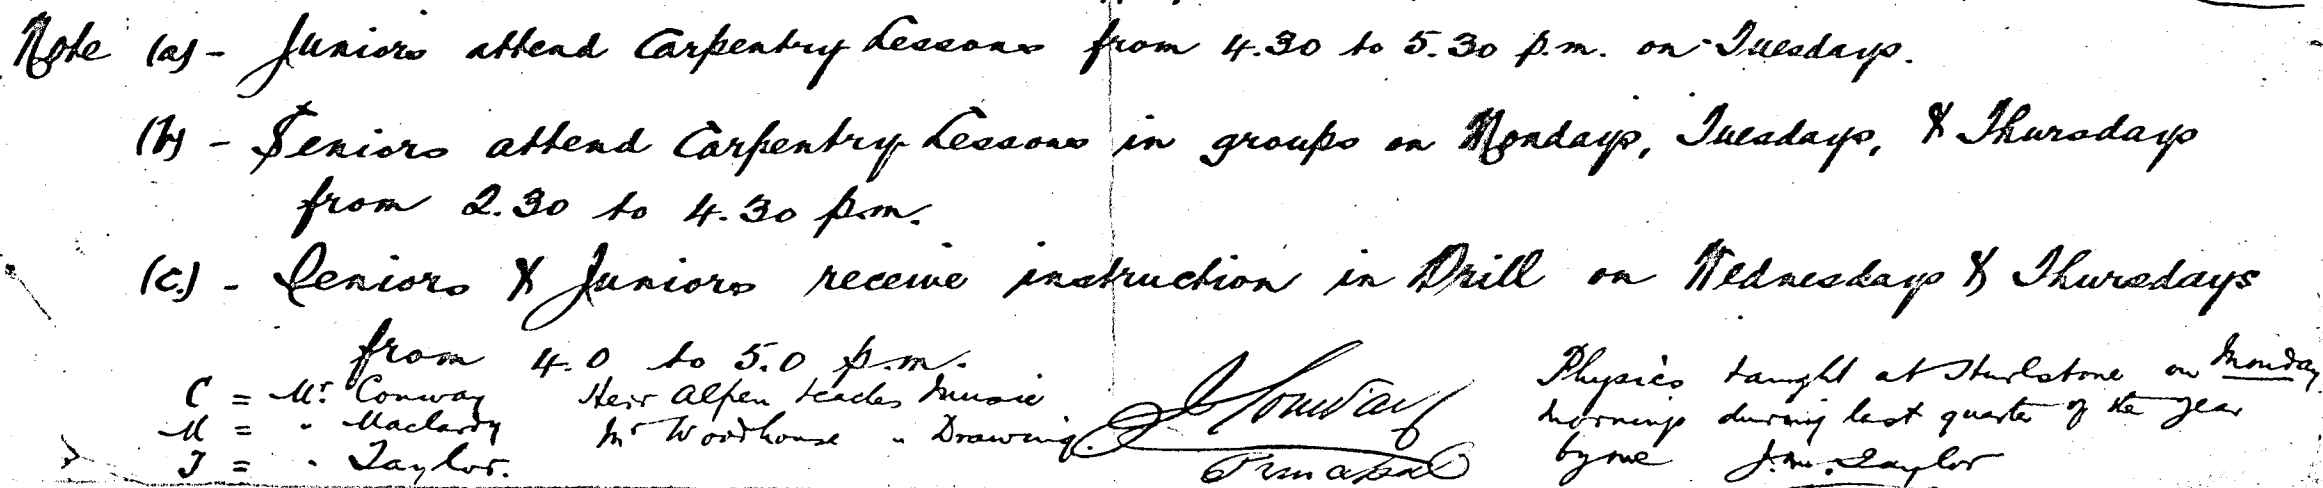 Note (a) - Juniors attend Carpentry Lessons from 4.30 to 5.30 p.m. on Tuesdays.
(b) - Seniors attend Carpentry Lessons in groups on Mondays, Tuesdays, & Thursdays
from 2.30 to 4.30 p.m.
(c.) - Seniors & Juniors receive instruction in Drill on Wednesdays & Thursdays
from 4.0 to 5.0 p.m.
C = Mr. Conway
M = " Maclardy
T = " Taylor.
Herr Alpen teaches Music
Mr Woodhouse " Drawing.
J Conway
Principal
Physics taught at Hurlstone on Monday
mornings during last quarter of the year
by me J.M. Taylor